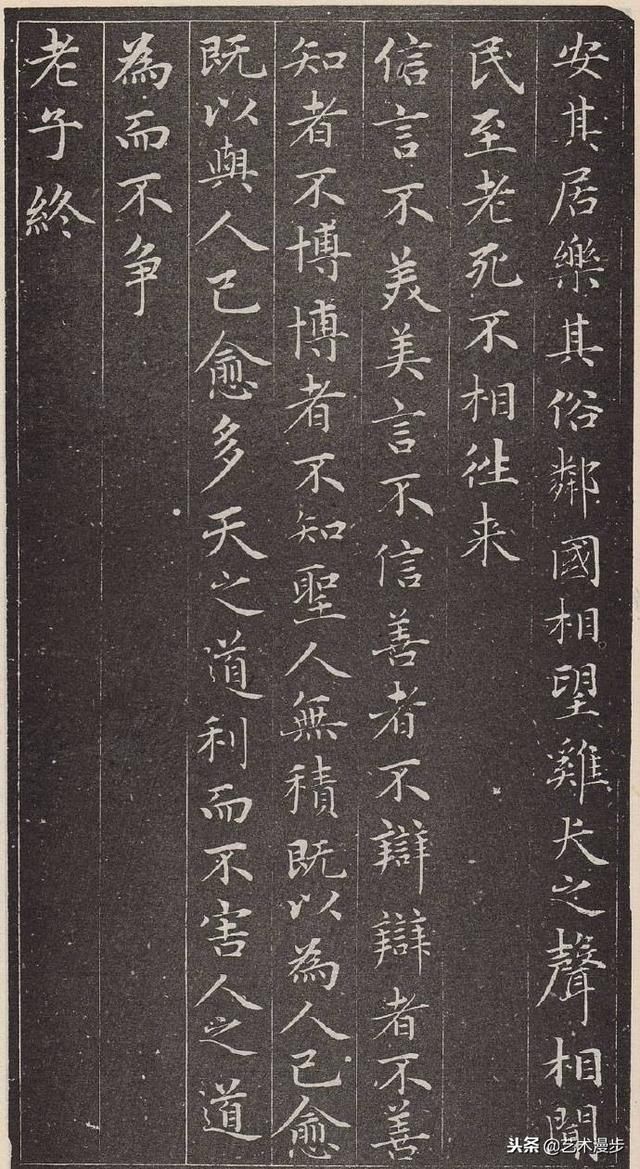 安其居樂其俗鄰國相望雞犬之聲相聞
民至老死不相徃来
信言不美美言不信善者不辯辯者不善
知者不博博者不知聖人無積既以為人己愈
既以與人己愈多天之道利而不害人之道
為而不争
老子終
头条@艺术漫步